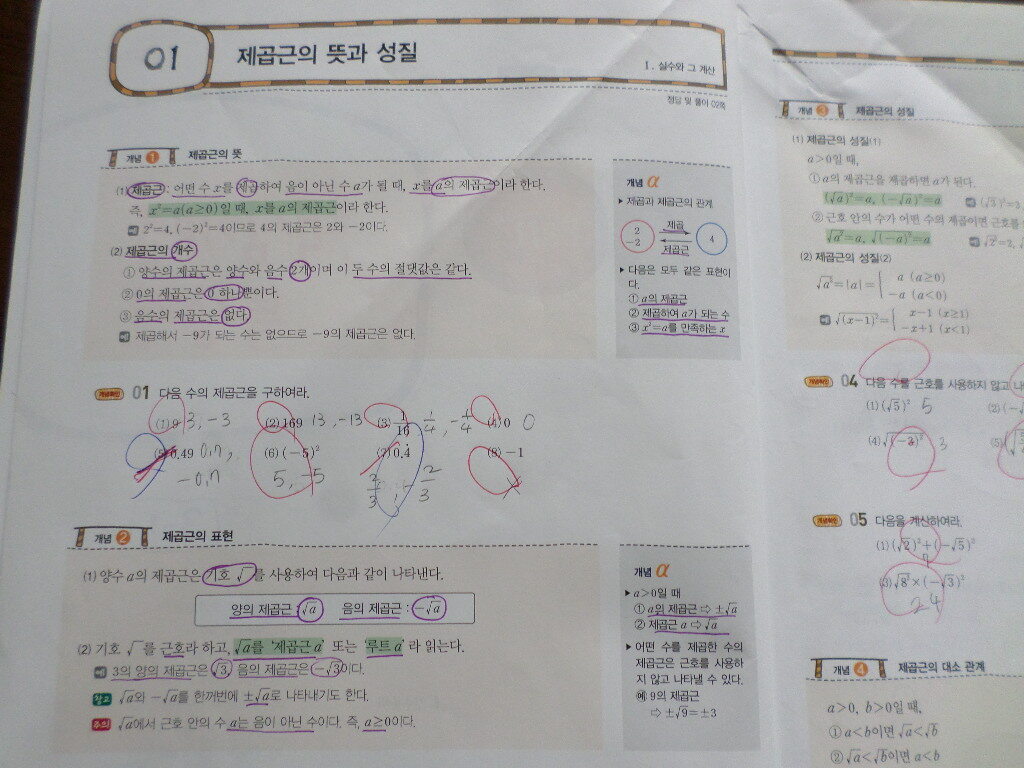 01
제곱근의 뜻과 성질
Ⅰ. 실수와 그 계산
정답 및 풀이 02쪽
개념 1 제곱근의 뜻
(1) 제곱근 : 어떤 수 x를 제곱하여 음이 아닌 수 a가 될 때, x를 a의 제곱근이라 한다.
즉, x²=a(a≥0)일 때, x를 a의 제곱근이라 한다.
2²=4, (−2)²=4이므로 4의 제곱근은 2와 −2이다.
(2) 제곱근의 개수
① 양수의 제곱근은 양수와 음수 2개이며 이 두 수의 절댓값은 같다.
② 0의 제곱근은 0 하나뿐이다.
③ 음수의 제곱근은 없다.
제곱해서 −9가 되는 수는 없으므로 −9의 제곱근은 없다.
개념 α
▶ 제곱과 제곱근의 관계
2 제곱 4
−2 제곱근
▶ 다음은 모두 같은 표현이
다.
① a의 제곱근
② 제곱하여 a가 되는 수
③ x²=a를 만족하는 x
개념확인 01 다음 수의 제곱근을 구하여라.
(1) 9 3, −3 (2) 169 13, −13 (3) 1/16 1/4, −1/4 (4) 0 0
(5) 0.49 0.7, (6) (−5)² (7) 0.4̇ (8) −1
−0.7 5, −5 2/3, −2/3 ×
개념 2 제곱근의 표현
(1) 양수 a의 제곱근은 기호 √ 를 사용하여 다음과 같이 나타낸다.
양의 제곱근 : √a 음의 제곱근 : −√a
(2) 기호 √ 를 근호라 하고, √a를 ‘제곱근 a’ 또는 ‘루트 a’라 읽는다.
3의 양의 제곱근은 √3, 음의 제곱근은 −√3이다.
참고 √a와 −√a를 한꺼번에 ±√a로 나타내기도 한다.
주의 √a에서 근호 안의 수 a는 음이 아닌 수이다. 즉, a≥0이다.
개념 α
▶ a>0일 때
① a의 제곱근 ⇨ ±√a
② 제곱근 a ⇨ √a
▶ 어떤 수를 제곱한 수의
제곱근은 근호를 사용하
지 않고 나타낼 수 있다.
예 9의 제곱근
⇨ ±√9=±3
개념 3 제곱근의 성질
(1) 제곱근의 성질(1)
a>0일 때,
① a의 제곱근을 제곱하면 a가 된다.
(√a)²=a, (−√a)²=a (√3)²=3
② 근호 안의 수가 어떤 수의 제곱이면 근호를
√a²=a, √(−a)²=a √2²=2,
(2) 제곱근의 성질(2)
√a²=|a|={ a (a≥0)
−a (a<0)
√(x−1)²={ x−1 (x≥1)
−x+1 (x<1)
개념확인 04 다음 수를 근호를 사용하지 않고 나
(1) (√5)² 5 (2) (−
(4) √(−3)² 3 (5)
개념확인 05 다음을 계산하여라.
(1) (√2)²+(−√5)²
7
(3) √8²×(−√3)²
24
개념 4 제곱근의 대소 관계
a>0, b>0일 때,
① a<b이면 √a<√b
② √a<√b이면 a<b